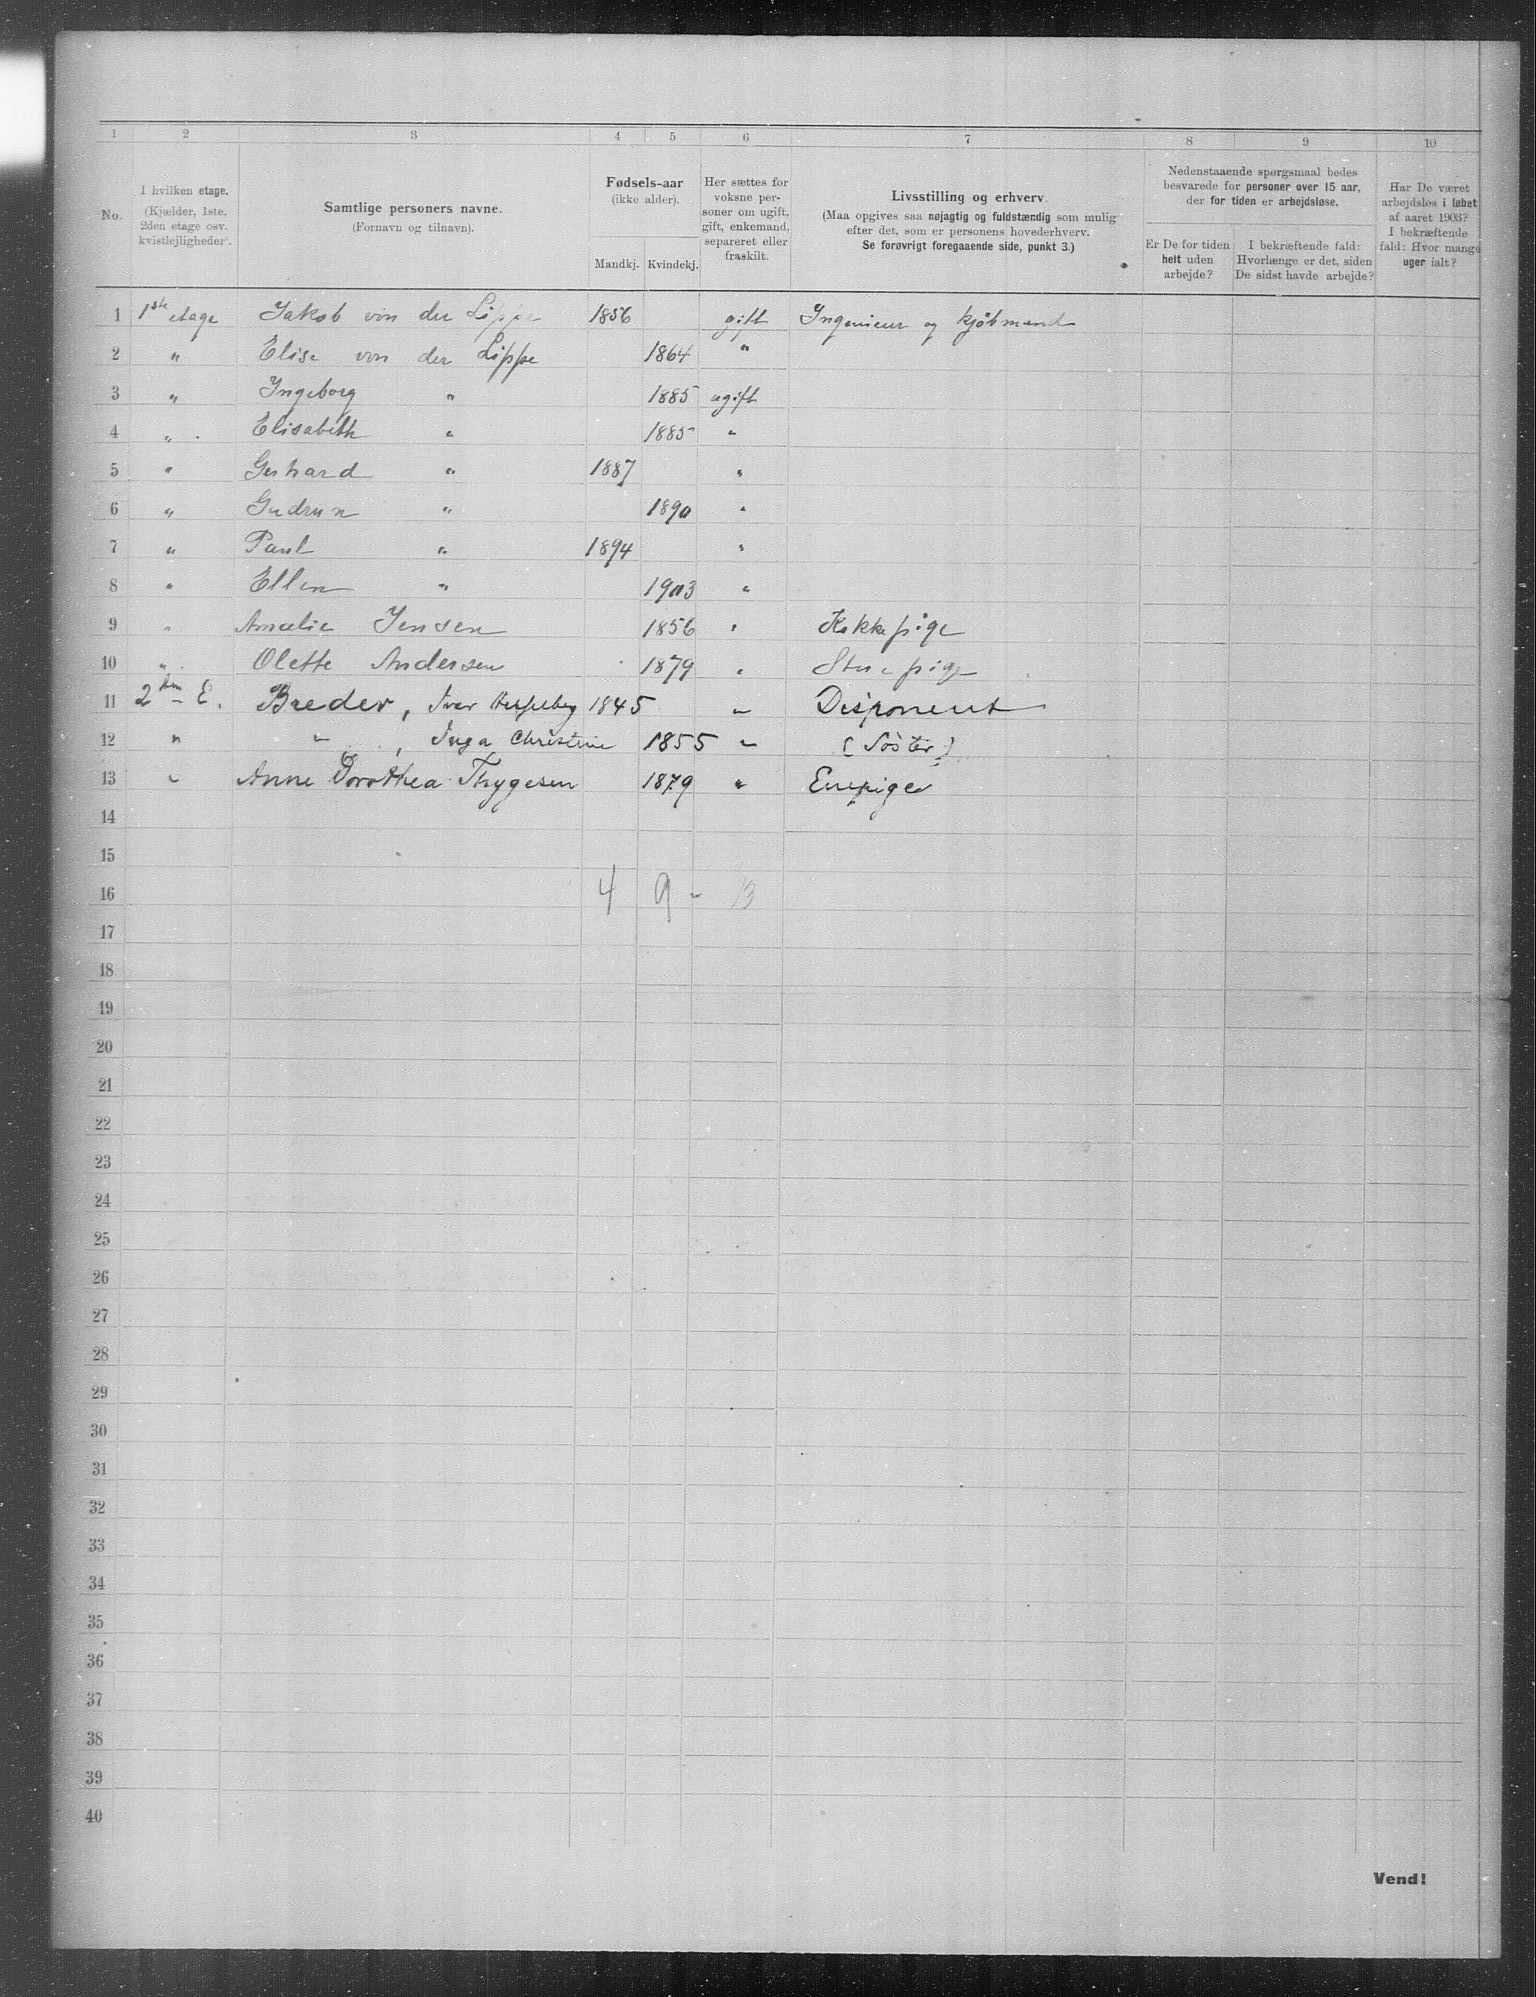 1 2 3 4 5 6 7 8 9 10
No.
I hvilken etage.
(Kjælder, 1ste,
2den etage osv.
kvistlejligheder).
Samtlige personers navne.
(Fornavn og tilnavn).
Fødsels-aar
(ikke alder).
Mandkj. Kvindekj.
Her sættes for
voksne per-
soner om ugift,
gift, enkemand,
separeret eller
fraskilt.
Livsstilling og erhverv.
(Maa opgives saa nøjagtig og fuldstændig som mulig
efter det, som er personens hovederhverv.
Se forøvrigt foregaaende side, punkt 3.)
Nedenstaaende spørgsmaal bedes
besvarede for personer over 15 aar,
der for tiden er arbejdsløse.
Er De for tiden
helt uden
arbejde?
I bekræftende fald:
Hvorlænge er det, siden
De sidst havde arbejde?
Har De været
arbejdsløs i løbet
af aaret 1903?
I bekræftende
fald: Hvor mange
uger ialt?
1 1ste etage Jakob von der Lippe 1856 gift Ingenieur og kjøbmand
2 " Elise von der Lippe 1864 "
3 " Ingeborg " 1885 ugift
4 " Elisabeth " 1885 "
5 " Gerhard " 1887 "
6 " Gudrun " 1890 "
7 " Paul " 1894 "
8 " Ellen " 1903 "
9 " Amalie Jensen 1856 " Kokkepige
10 " Olette Andersen 1879 " Stuepige
11 2den E. Breder, Ivar 1845 " Disponent
12 " " , Inga Christine 1855 " (Søster)
13 " Anne Dorothea Thygesen 1879 " Enepige
14
15
16 4 9 - 13
17
18
19
20
21
22
23
24
25
26
27
28
29
30
31
32
33
34
35
36
37
38
39
40
Vend!